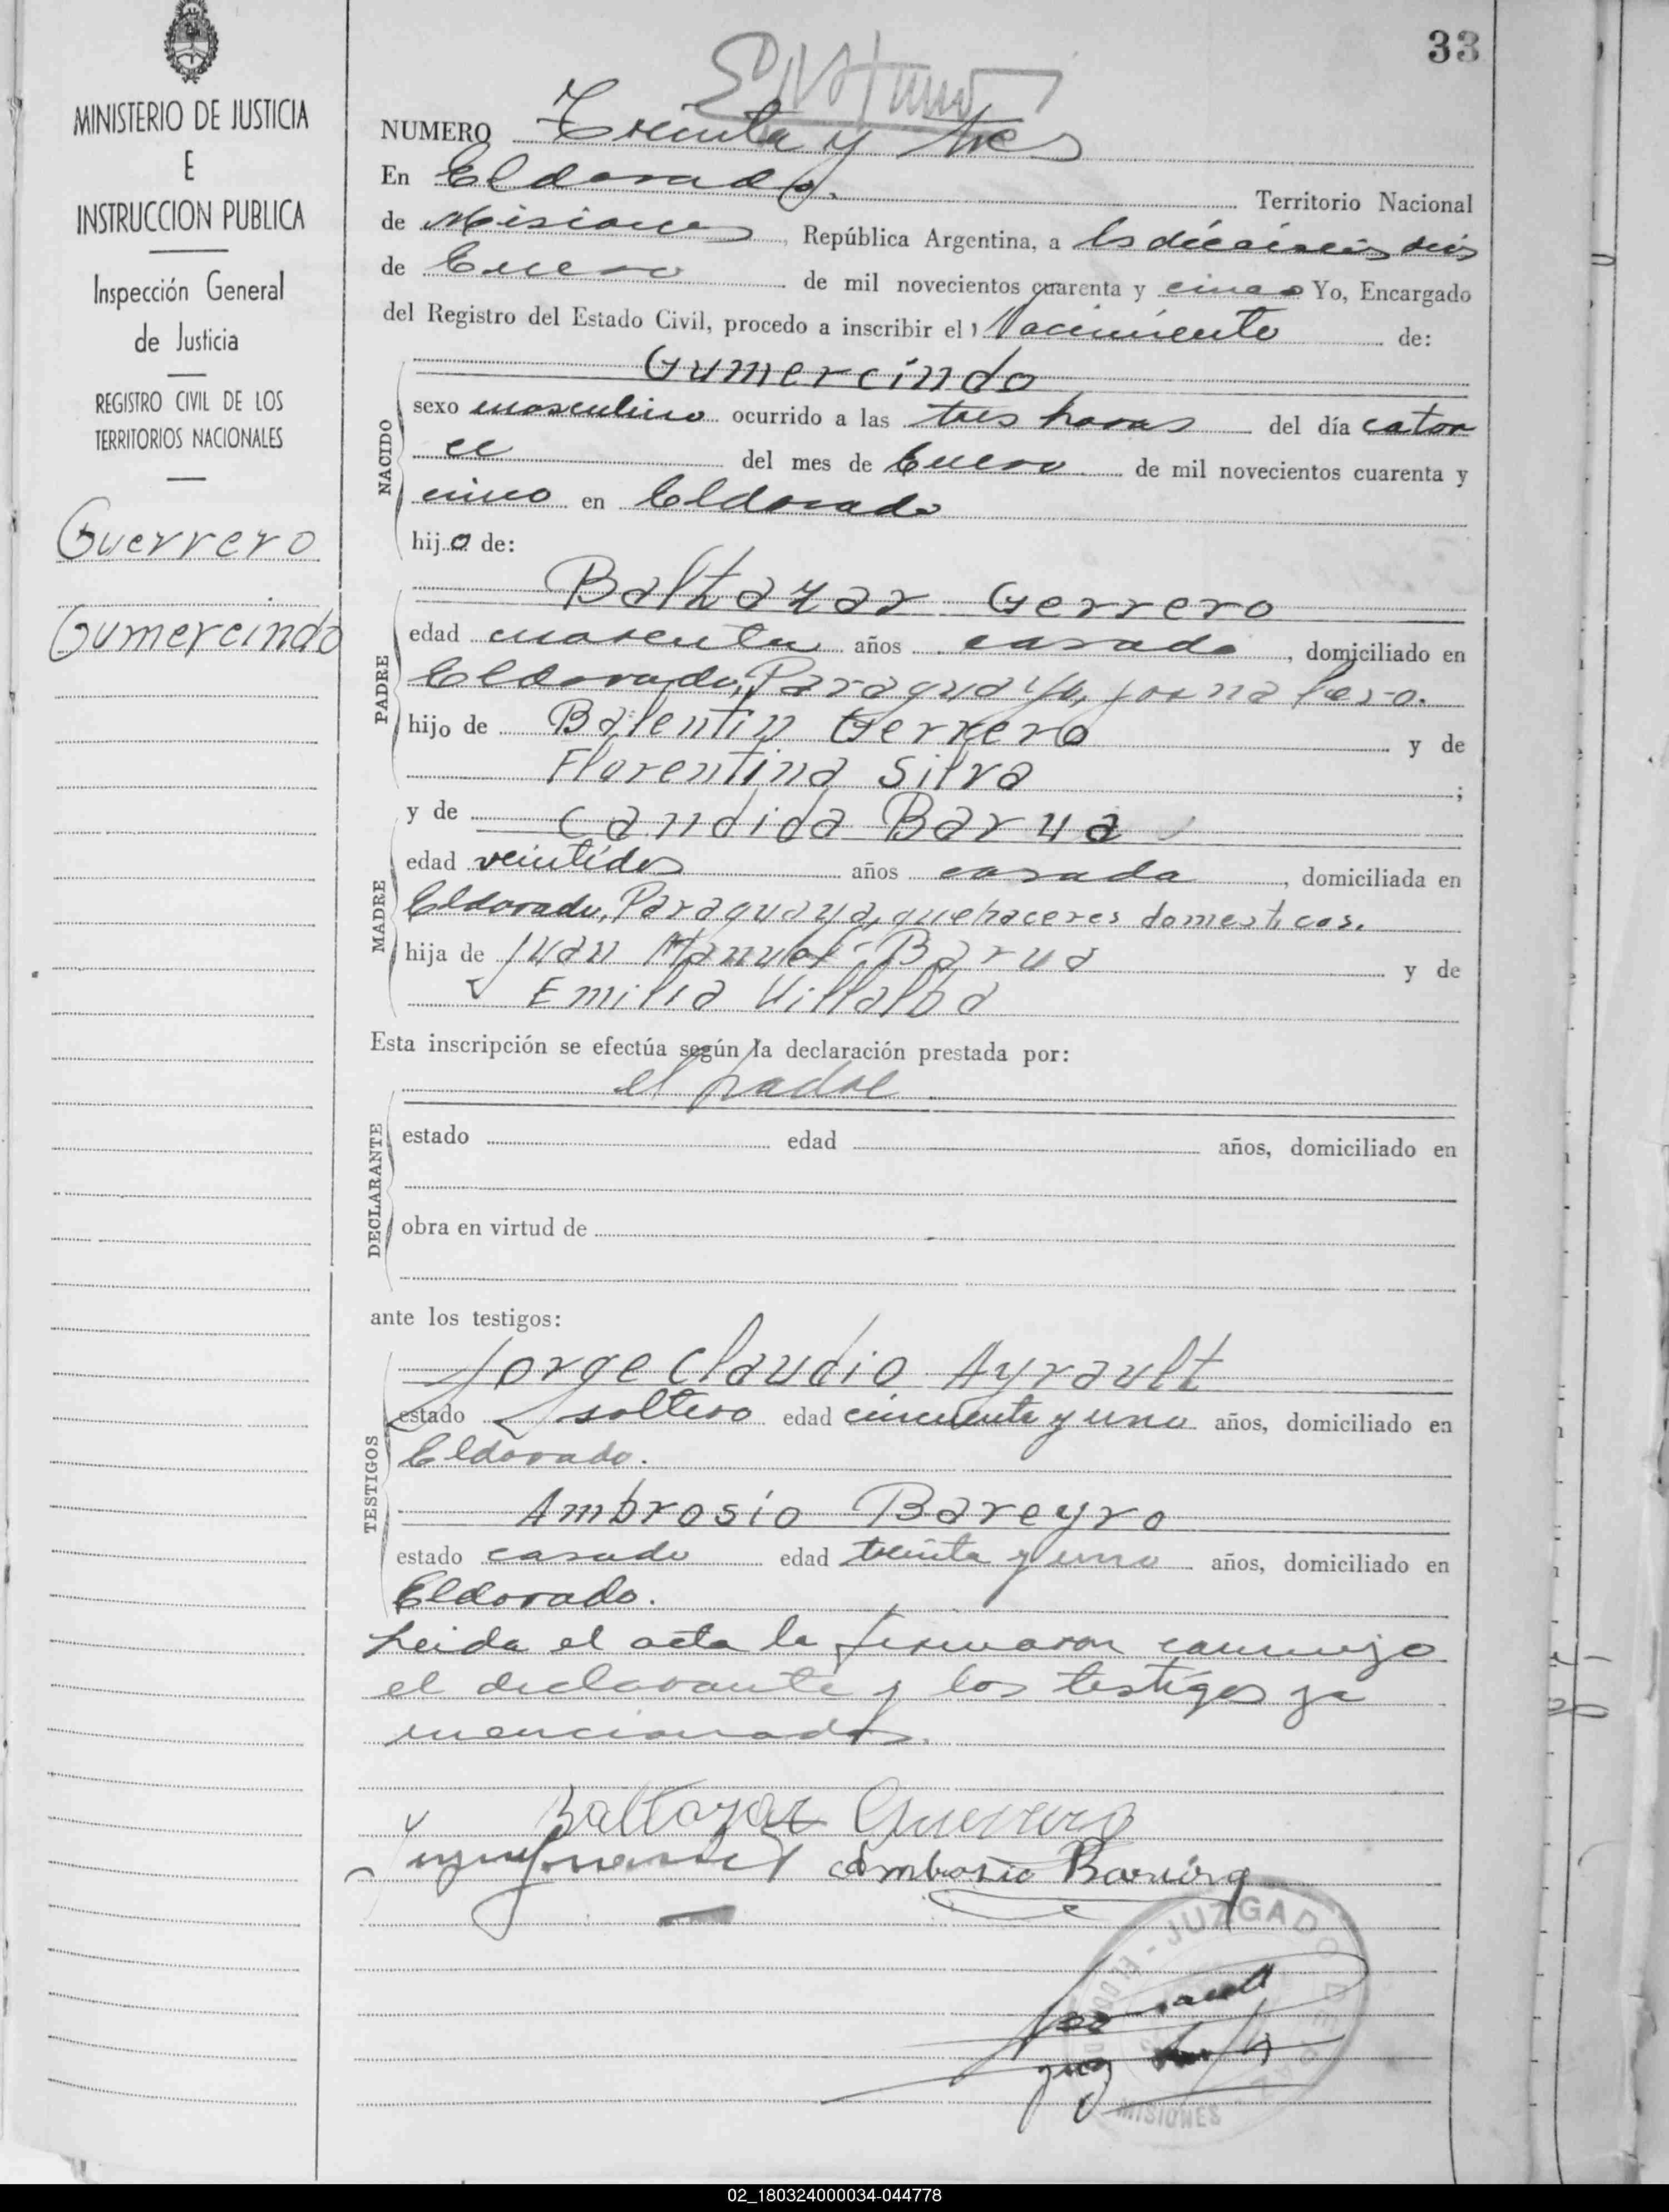 33
MINISTERIO DE JUSTICIA
E
INSTRUCCION PUBLICA
Inspección General
de Justicia
REGISTRO CIVIL DE LOS
TERRITORIOS NACIONALES
Guerrero
Gumercindo
NUMERO Treinta y tres
En Eldorado. Territorio Nacional
de Misiones, República Argentina, a los dieciseis dias
de Enero de mil novecientos cuarenta y cinco Yo, Encargado
del Registro del Estado Civil, procedo a inscribir el Nacimiento de:
NACIDO
Gumercindo
sexo masculino ocurrido a las tres horas del día cator
ce del mes de Enero de mil novecientos cuarenta y
cinco en Eldorado
hijo de:
PADRE
Balthazar Gerrero
edad cuarenta años casado, domiciliado en
Eldorado, Paraguayo, jornalero.
hijo de Balentin Gerrero y de
Florentina Silva;
y de Candida Barua
MADRE
edad veintidos años casada, domiciliada en
Eldorado, Paraguaya, quehaceres domesticos.
hija de Juan Manuel Barua y de
Emilia Villalba
Esta inscripción se efectúa según la declaración prestada por:
el padre
DECLARANTE
estado edad años, domiciliado en
obra en virtud de
ante los testigos:
TESTIGOS
Jorge Claudio Ayrault
estado soltero edad cincuenta y uno años, domiciliado en
Eldorado.
Ambrosio Bareyro
estado casado edad treinta y uno años, domiciliado en
Eldorado.
Leida el acta la firmaron conmigo
el declarante y los testigos ya
mencionados.
Baltazar Guerrero
Ambosio
JUZGADO DE PAZ
MISIONES
02_180324000034-044778